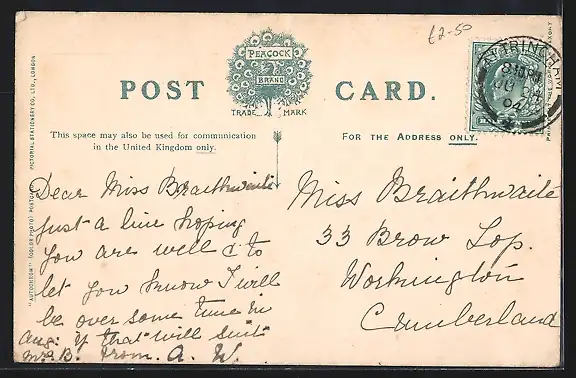 £2-50
PEACOCK
BRAND
TRADE MARK
POST CARD.
ALTRINCHAM
04
This space may also be used for communication
in the United Kingdom only.
FOR THE ADDRESS ONLY.
"AUTOCHROM" (COLOR PHOTO) POSTCARD
PICTORIAL STATIONERY CO., LTD., LONDON
Dear Miss Braithwaite
just a line hoping
you are well & to
let you know I will
be over some time in
Aug: if that will suit
Mrs B. from. A. W.
Miss Braithwaite
33 Brow Top.
Workington
Cumberland